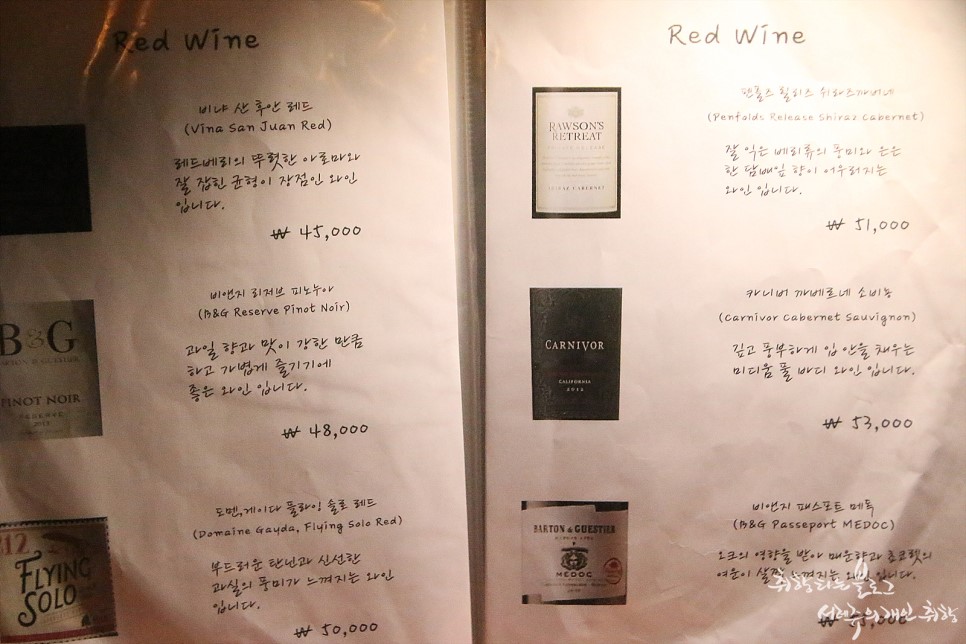 Red Wine
비냐 산 후안 레드
(Vina San Juan Red)
레드베리의 뚜렷한 아로마와
잘 잡힌 균형이 장점인 와인
입니다.
₩ 45,000
B&G
PINOT NOIR
RESERVE
비앤지 리저브 피노누아
(B&G Reserve Pinot Noir)
과일 향과 맛이 강한 만큼
하고 가볍게 즐기기에
좋은 와인 입니다.
₩ 48,000
12
FLYING
SOLO
도멘,게이다 플라잉 솔로 레드
(Domaine Gayda, Flying Solo Red)
부드러운 탄닌과 신선한
과실의 풍미가 느껴지는 와인
입니다.
₩ 50,000
Red Wine
RAWSON'S
RETREAT
SHIRAZ CABERNET
펜폴즈 릴리즈 쉬라즈까버네
(Penfolds Release Shiraz Cabernet)
잘 익은 베리류의 풍미와 은은
한 담배잎 향이 어우러지는
와인 입니다.
₩ 51,000
CARNIVOR
CALIFORNIA
2012
카니버 까베르네 소비뇽
(Carnivor Cabernet Sauvignon)
깊고 풍부하게 입 안을 채우는
미디움 풀 바디 와인 입니다.
₩ 53,000
BARTON & GUESTIER
MEDOC
비앤지 패스포트 메독
(B&G Passeport MEDOC)
오크의 영향을 받아 매운향과 초코렛의
여운이 살짝 느껴지는 와인 입니다.
취향리뷰 블로그
개인 취향